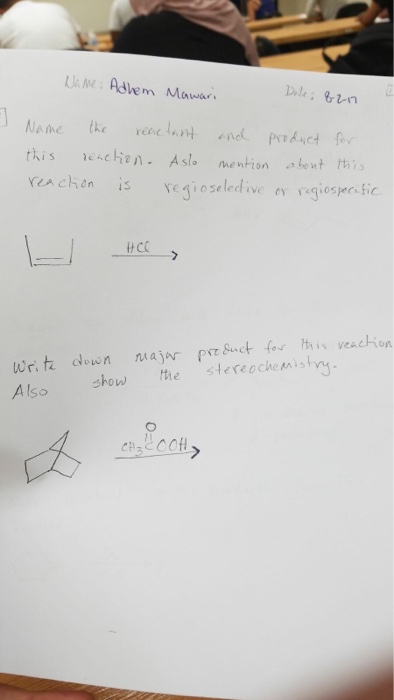 Name: Adhem Mawari Date: 8-2-17
Name the reactant and product for
this reaction. Aslo mention about this
reaction is regioselective or regiospecific
HCl
Write down major product for this reaction
Also show the stereochemistry.
O
CH3COOH